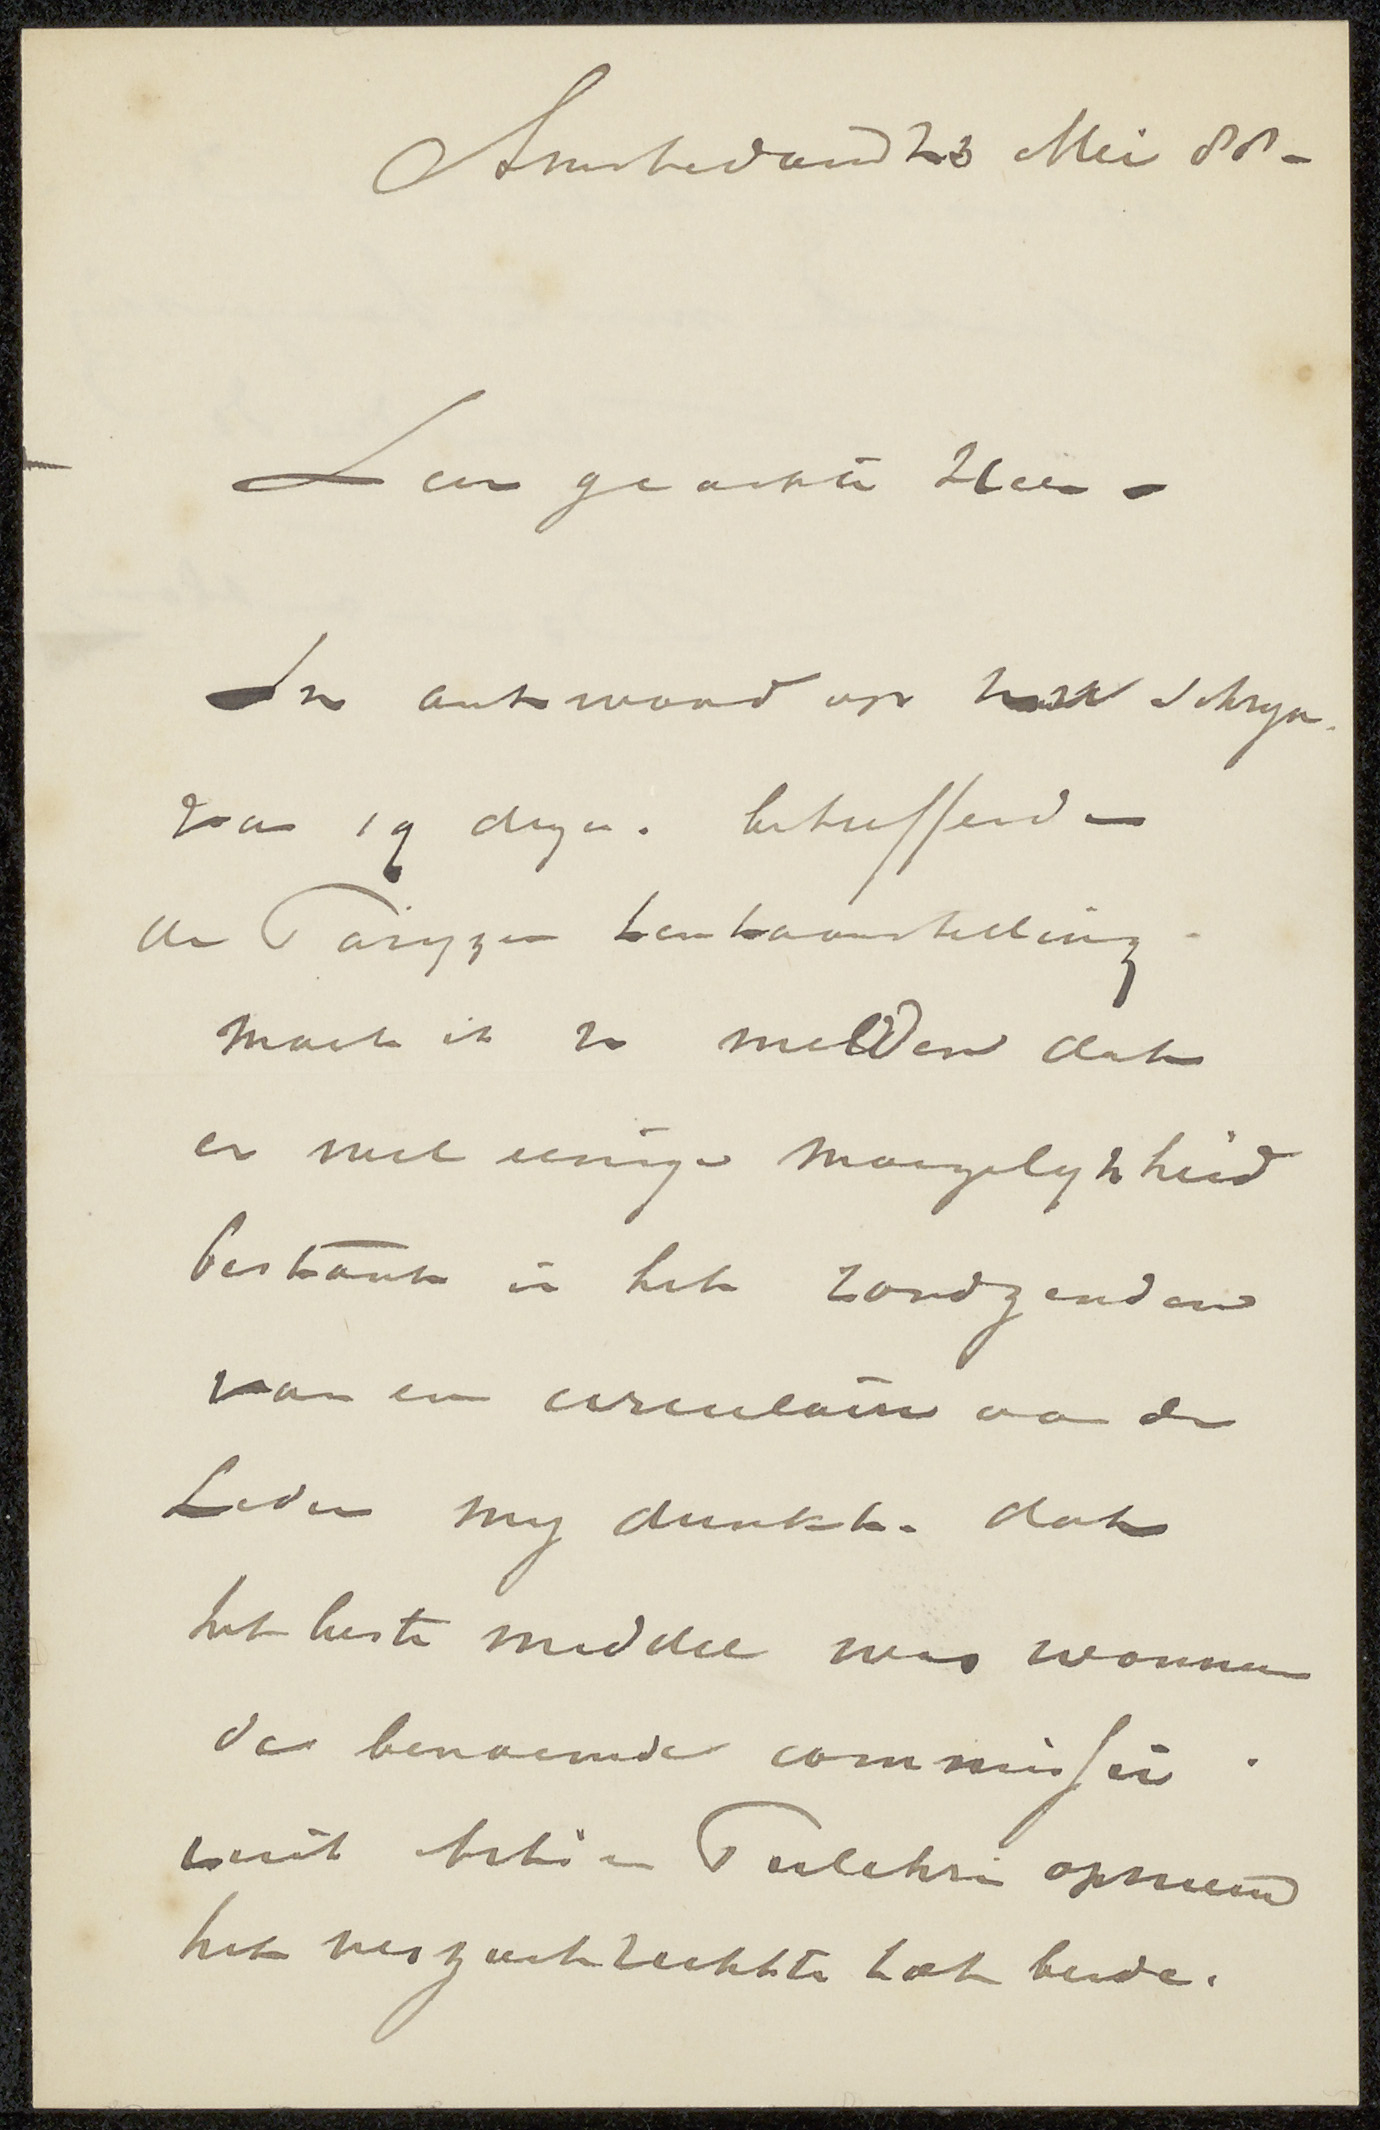 Amsterdam 23 Mei 88-
Zeer geachte Heer -
In antwoord op Uw schryv.
van 19 dezer. betreffende
de Paryzer tentoonstelling -
moet ik U melden dat
er wel eenige moeyelykheid
bestaat in het rondzenden
van een circulaire aan de
Leden my dunkt. dat
het beste middel was wanneer
de benoemde commissie .
uit Pulchri opnieuw
het verzoek rechtte tot beide.